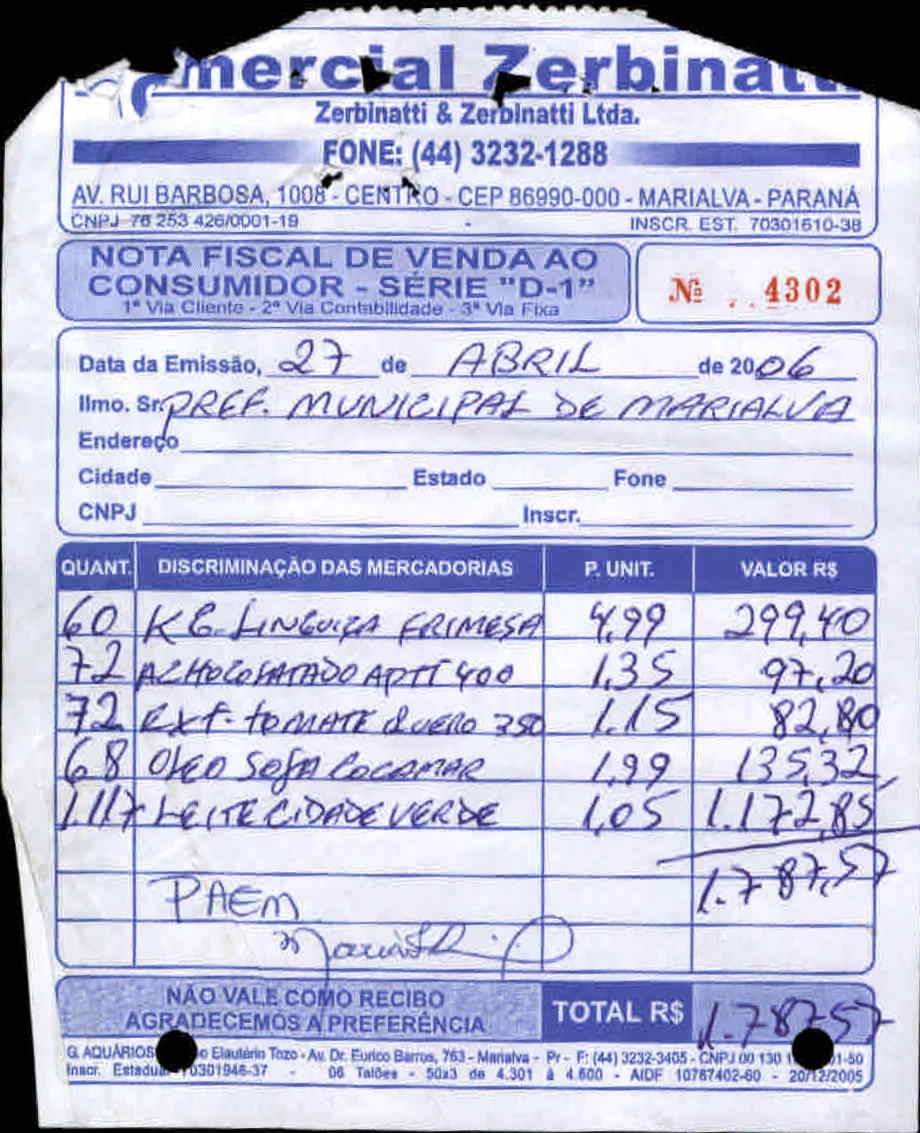 Comercial Zerbinatti
Zerbinatti & Zerbinatti Ltda.
FONE: (44) 3232-1288
AV. RUI BARBOSA, 1008 - CENTRO - CEP 86990-000 - MARIALVA - PARANÁ
CNPJ 76 253 426/0001-19 INSCR. EST. 70301610-38
NOTA FISCAL DE VENDA AO
CONSUMIDOR - SÉRIE "D-1"
1ª Via Cliente - 2ª Via Contabilidade - 3ª Via Fixa
Nº 4302
Data da Emissão, 27 de ABRIL de 2006
Ilmo. Sr. PREF. MUNICIPAL DE MARIALVA
Endereço
Cidade Estado Fone
CNPJ Inscr.
QUANT. DISCRIMINAÇÃO DAS MERCADORIAS P. UNIT. VALOR R$
60 KG LINGUIÇA FRIMESA 4,99 299,40
72 ACHOCOLATADO APTI 400 1,35 97,20
72 EXT. TOMATE QUERO 350 1,15 82,80
68 OLEO SOJA COCAMAR 1,99 135,32
1.117 LEITE CIDADE VERDE 1,05 1.172,85
1.787,57
PAEM
NÃO VALE COMO RECIBO
AGRADECEMOS A PREFERÊNCIA
TOTAL R$ 1.787,57
G. AQUÁRIOS Elautério Tozo - Av. Dr. Eurico Barros, 763 - Marialva - Pr - F: (44) 3232-3405 - CNPJ 00 130 01-50
Inscr. Estadual 70301946-37 - 06 Talões - 50x3 de 4.301 à 4.600 - AIDF 10767402-60 - 20/12/2005